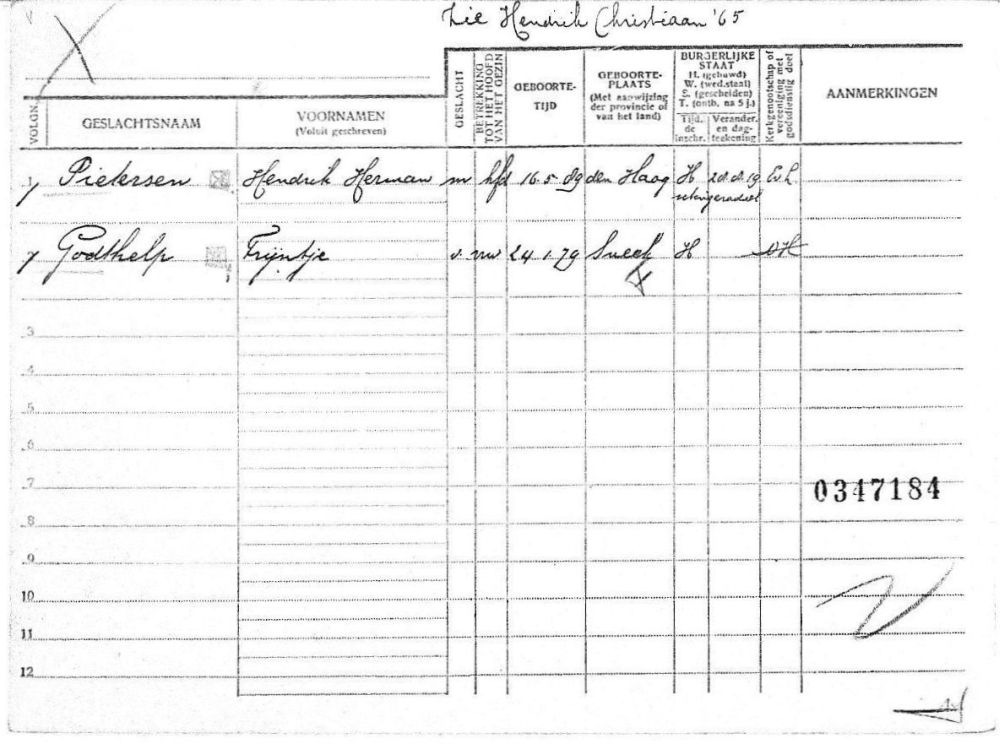 Zie Hendrik Christiaan '65
VOLGN.
GESLACHTSNAAM
VOORNAMEN
(Voluit geschreven)
GESLACHT
BETREKKING TOT HET HOOFD VAN HET GEZIN
GEBOORTE-
TIJD
GEBOORTE-
PLAATS
(Met aanwijzing
der provincie of
van het land)
BURGERLIJKE
STAAT
H. (gehuwd)
W. (wed.staat)
S. (gescheiden)
T. (ontb. na 5 j.)
Tijd.
de
inschr.
Verander.
en dag-
teekening
Kerkgenootschap of
vereeniging met
godsdienstig doel
AANMERKINGEN
1 Pietersen Hendrik Herman m hfd 16.5.89 den Haag H
Godthelp Trijntje v. vrw 24.1.79 Sneek H DH
3
4
5
6
7
0347184
8
9
10
11
12